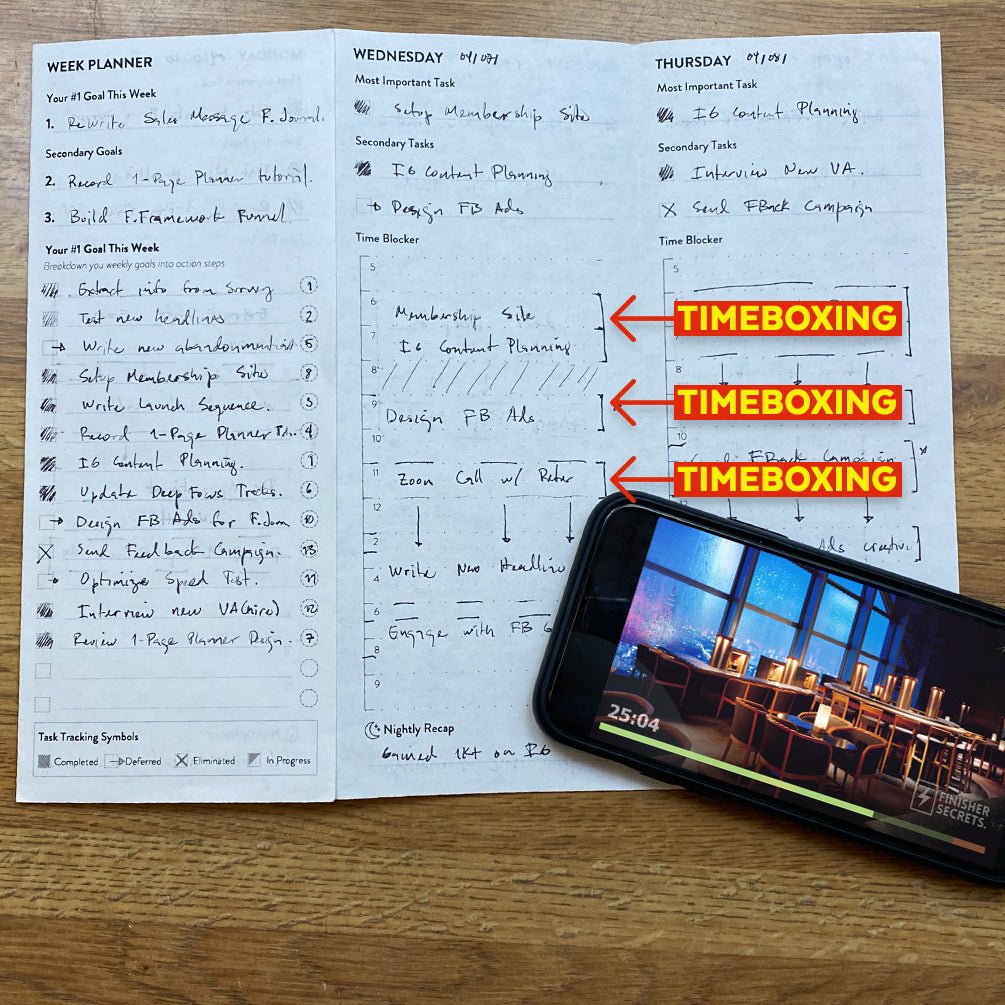 WEEK PLANNER
Your #1 Goal This Week
1. ReWrite Sales Message F. Journal.
Secondary Goals
2. Record 1-Page Planner tutorial.
3. Build F.Framework Funnel
Your #1 Goal This Week
Breakdown you weekly goals into action steps
Extract info from Survey 1
Test new headlines 2
Write new abandonment 5
Setup Membership Site 8
Write Launch Sequence. 3
Record 1-Page Planner 4
IG Content Planning. 1
Update Deep Focus Tracks. 6
Design FB Ads for F.Jorn 10
Send Feedback Campaign. 13
Optimize Speed Test. 11
Interview new VA (hire) 12
Review 1-Page Planner Design. 7
Task Tracking Symbols
Completed Deferred Eliminated In Progress
WEDNESDAY 04/07/
Most Important Task
Setup Membership Site
Secondary Tasks
IG Content Planning
Design FB Ads
Time Blocker
5
6
Membership Site
7
IG Content Planning
8
9
Design FB Ads
10
11
Zoom Call w/ Peter
12
2
4
Write New Headline
6
Engage with FB G
8
9
Nightly Recap
Gained 1K+ on IG
THURSDAY 04/08/
Most Important Task
IG Content Planning
Secondary Tasks
Interview New VA.
Send FBack Campaign
Time Blocker
5
8
10
FBack Campaign
12
Ads creative
TIMEBOXING
TIMEBOXING
TIMEBOXING
25:04
FINISHER
SECRETS.